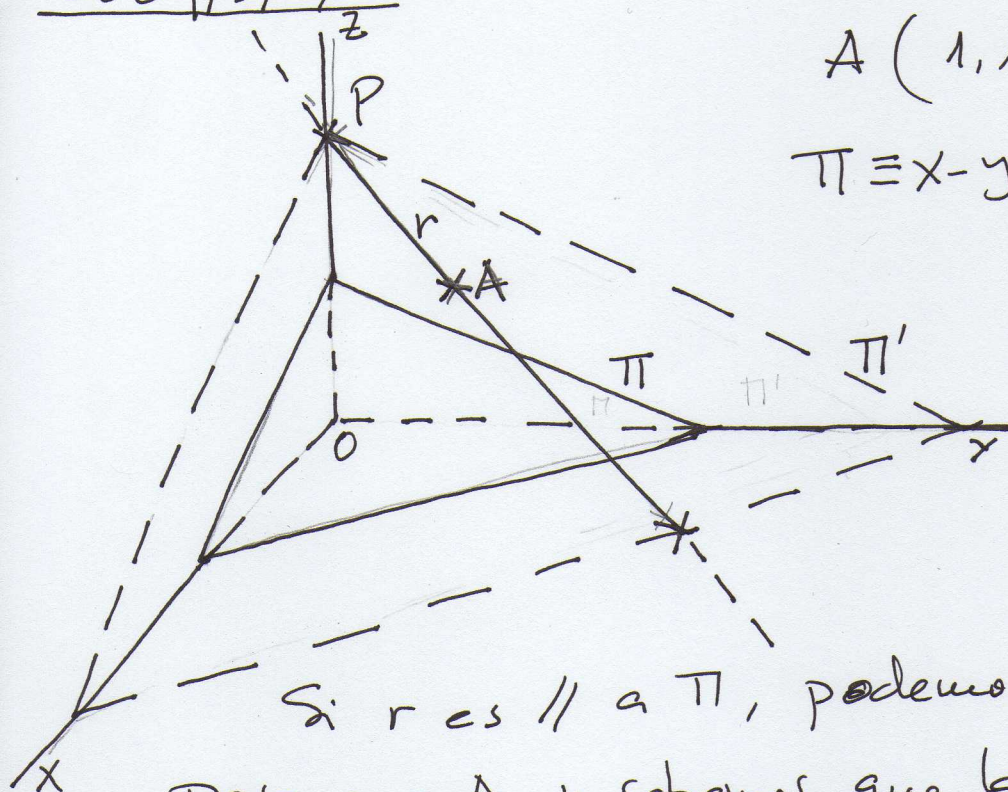 z
P
A ( 1,
Π ≡ x - y
r
A
Π
Π'
Π'
O
y
Si r es // a Π, podemo
x
que